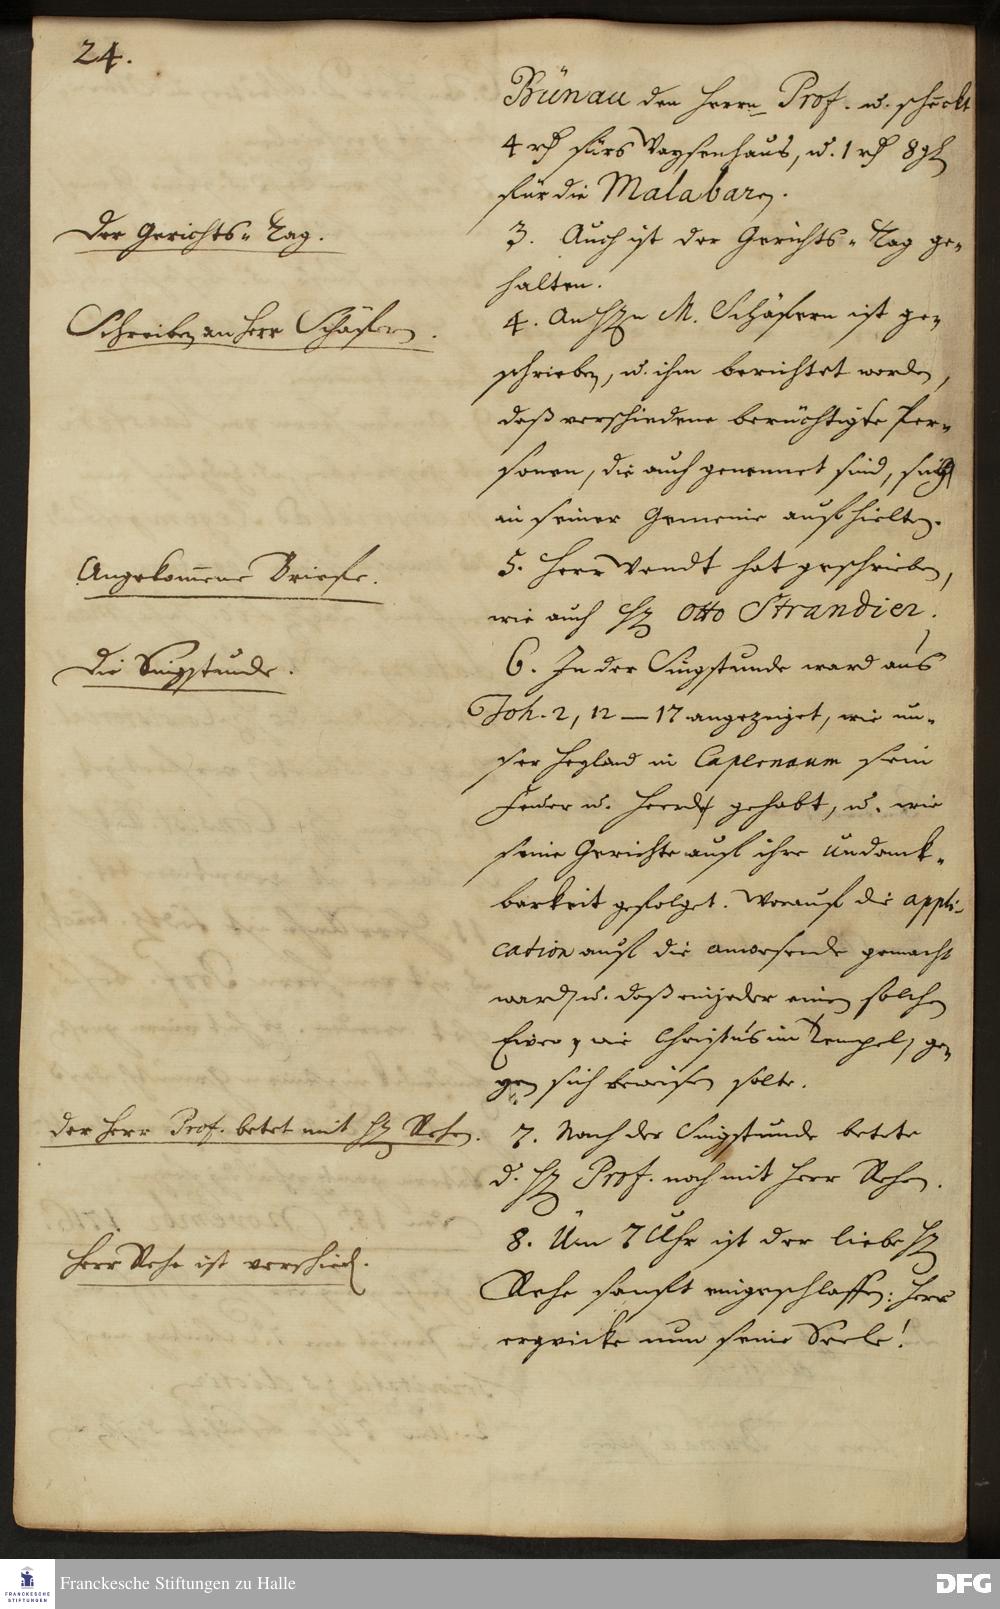 24.
Bünau den Herrn Prof. u. schenckt
4 rth fürs Waysenhaus, u. 1 rth 8 gl
für die Malabaren.
Der Gerichts-Tag.
3. Auch ist der Gerichts-Tag ge-
halten.
Schreiben an Herr Schäfern.
4. An Hrn M. Schäfern ist ge-
schrieben, u. ihm berichtet worden,
daß verschiedene berüchtigte Per-
sonen, die auch genennet sind, sich
in seiner Gemeine aufhielten.
Angekommene Briefe.
5. Herr Wendt hat geschrieben,
wie auch Hr Otto Strandier.
Die Singstunde.
6. In der Singstunde ward aus
Joh. 2, 12 – 17 angezeiget, wie un-
ser Heyland in Capernaum sein
Feuer u. Heerd gehabt, u. wie
seine Gerichte auf ihre Undanck-
barkeit gefolget. Worauf die appli-
cation auf die anwesende gemacht
ward, u. daß einjeder einen solchen
Eiver, wie Christus im Tempel, ge-
gen sich beweisen solte.
Der Herr Prof. betet mit Hr Rehen.
7. Nach der Singstunde betete
d. Hr Prof. noch mit Herr Rehen.
Herr Rehe ist verschied.
8. Um 7 Uhr ist der liebe Hr
Rehe sanft eingeschlaffen: Herr
erqvicke nun seine Seele!
FRANCKESCHE STIFTUNGEN
Franckesche Stiftungen zu Halle
DFG